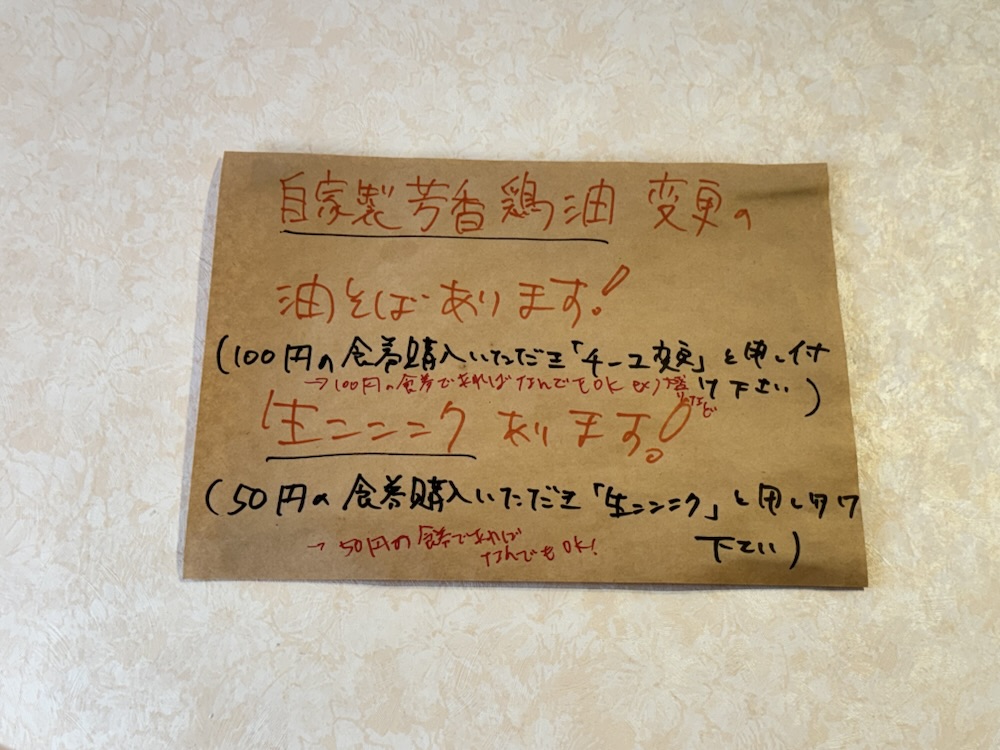 自家製芳香鶏油 変更の
油そばあります!
(100円の食券購入いただき「チーユ変更」と申し付
け下さい)
→100円の食券であればなんでもOK ex) など
生ニンニクあります!
(50円の食券購入いただき「生ニンニク」と申し付け
下さい)
→50円の食券であれば
なんでもOK!